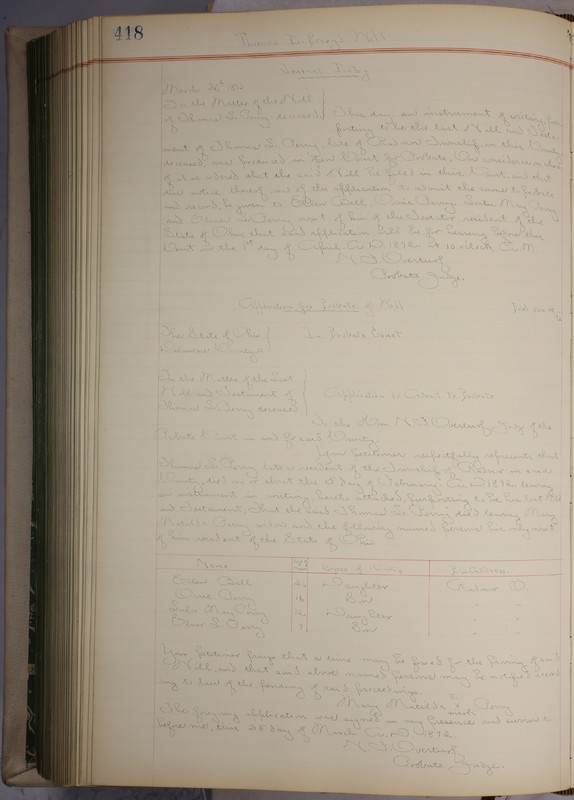 418
Thomas L. Perry's Will
Journal Entry
March 26th 1892
In the Matter of the Will
of Thomas L. Perry deceased
This day an instrument of writing pur-
porting to be the last Will and Testa-
ment of Thomas L. Perry, late of Radnor Township in this County
deceased, was produced in open Court for Probate, On consideration where-
of it is ordered that the said Will be filed in this Court, and that
due notice thereof and of the application to admit the same to probate
and record, be given to Esther Bell, Perry, May Perry
and L. Perry next of kin of the Testator resident of the
State of Ohio that said application will be for hearing before this
Court on the 1st day of April A.D. 1892 at 10 o'clock A.M.
N. F. Overturf
Probate Judge.
Application for Probate of Will
The State of Ohio
Delaware County ss
In Probate Court
In the Matter of the Last
Will and Testament of
Thomas L. Perry deceased
Application to Admit to Probate
To the Hon N. F. Overturf Judge of the
Probate Court in and for said County.
Your petitioner respectfully represents that
Thomas L. Perry late a resident of the Township of Radnor in said
County, died on or about the day of February A.D. 1892 leaving
an instrument in writing, hereto attached, purporting to be his last Will
and Testament, That the said Thomas L. Perry died leaving Mary
Matilda Perry widow and the following named persons his only next
of kin resident of the State of Ohio
Name Degree of Kinship P.O. Address
Esther Bell Daughter Radnor O.
Perry Son " "
May Perry Daughter " "
L. Perry Son " "
Your petitioner prays that a time may be fixed for the proving of said
Will, and that said above named persons may be notified accord-
ing to law of the pendency of said proceedings.
Mary Matilda her x mark Perry
The foregoing application was signed in my presence and sworn to
before me, this 28 day of March A.D. 1892
N. F. Overturf
Probate Judge.